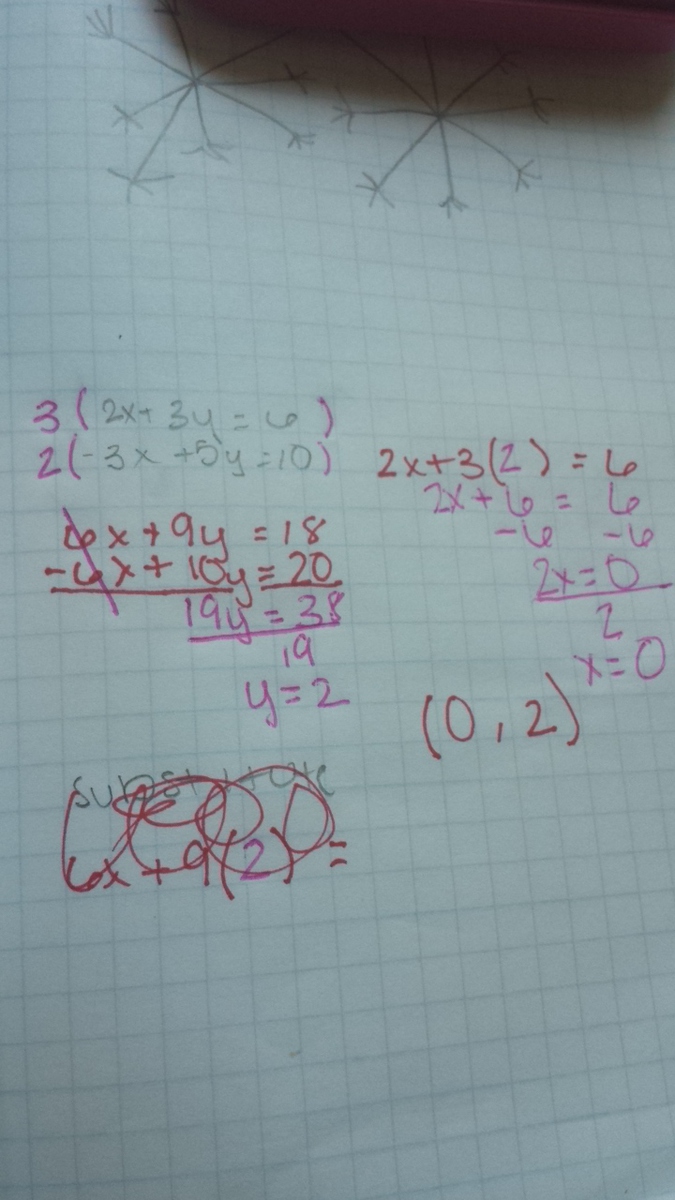 3(2x+3y=6)
2(-3x+5y=10)
6x+9y=18
-6x+10y=20
19y=38
19
y=2
2x+3(2)=6
2x+6=6
-6 -6
2x=0
2
x=0
(0,2)
substitute
6x+9(2)=